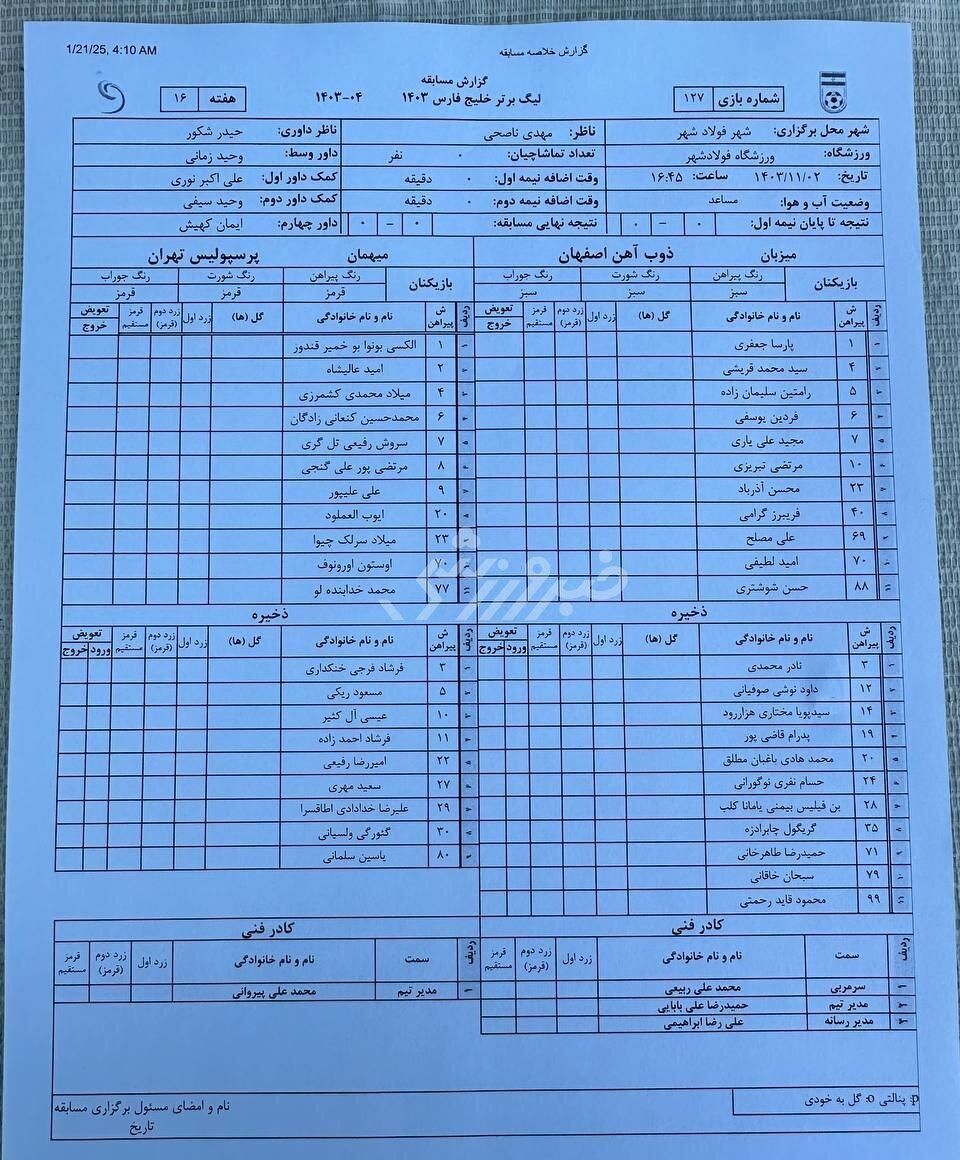 1/21/25, 4:10 AM
گزارش خلاصه مسابقه
گزارش مسابقه
شماره بازی ۱۲۷
لیگ برتر خلیج فارس ۱۴۰۳ ۱۴۰۳-۰۴
هفته ۱۶
شهر محل برگزاری: شهر فولاد شهر ناظر: مهدی ناصحی ناظر داوری: حیدر شکور
ورزشگاه: ورزشگاه فولادشهر تعداد تماشاچیان: ۰ نفر داور وسط: وحید زمانی
تاریخ: ۱۴۰۳/۱۱/۰۲ ساعت: ۱۶:۴۵ وقت اضافه نیمه اول: ۰ دقیقه کمک داور اول: علی اکبر نوری
وضعیت آب و هوا: مساعد وقت اضافه نیمه دوم: ۰ دقیقه کمک داور دوم: وحید سیفی
نتیجه تا پایان نیمه اول: ۰ – ۰ نتیجه نهایی مسابقه: ۰ – ۰ داور چهارم: ایمان کهیش
میزبان ذوب آهن اصفهان
بازیکنان رنگ پیراهن رنگ شورت رنگ جوراب
سبز سبز سبز
ردیف ش پیراهن نام و نام خانوادگی گل (ها) زرد اول زرد دوم (قرمز) قرمز مستقیم تعویض خروج
۱ ۱ پارسا جعفری
۲ ۴ سید محمد قریشی
۳ ۵ رامتین سلیمان زاده
۴ ۶ فردین یوسفی
۵ ۷ مجید علی یاری
۶ ۱۰ مرتضی تبریزی
۷ ۲۳ محسن آذرباد
۸ ۴۰ فریبرز گرامی
۹ ۶۹ علی مصلح
۱۰ ۷۰ امید لطیفی
۱۱ ۸۸ حسن شوشتری
ذخیره
ردیف ش پیراهن نام و نام خانوادگی گل (ها) زرد اول زرد دوم (قرمز) قرمز مستقیم تعویض ورود خروج
۱ ۳ نادر محمدی
۲ ۱۲ داود نوشی صوفیانی
۳ ۱۴ سیدپویا مختاری هزاررود
۴ ۱۹ پدرام قاضی پور
۵ ۲۰ محمد هادی باغبان مطلق
۶ ۲۴ حسام نفری نوگورانی
۷ ۲۸ بن فیلیس بیمنی یامانا کلب
۸ ۳۵ گریگول چابرادزه
۹ ۷۱ حمیدرضا طاهرخانی
۱۰ ۷۹ سبحان خاقانی
۱۱ ۹۹ محمود قاید رحمتی
کادر فنی
ردیف سمت نام و نام خانوادگی زرد اول زرد دوم (قرمز) قرمز مستقیم
۱ سرمربی محمد علی ربیعی
۲ مدیر تیم حمیدرضا علی بابایی
۳ مدیر رسانه علی رضا ابراهیمی
میهمان پرسپولیس تهران
بازیکنان رنگ پیراهن رنگ شورت رنگ جوراب
قرمز قرمز قرمز
ردیف ش پیراهن نام و نام خانوادگی گل (ها) زرد اول زرد دوم (قرمز) قرمز مستقیم تعویض خروج
۱ ۱ الکسی بونوا بو خمیر قندوز
۲ ۲ امید عالیشاه
۳ ۴ میلاد محمدی کشمرزی
۴ ۶ محمدحسین کنعانی زادگان
۵ ۷ سروش رفیعی تل گری
۶ ۸ مرتضی پور علی گنجی
۷ ۹ علی علیپور
۸ ۲۰ ایوب العملود
۹ ۲۳ میلاد سرلک چیوا
۱۰ ۷۰ اوستون اورونوف
۱۱ ۷۷ محمد خدابنده لو
ذخیره
ردیف ش پیراهن نام و نام خانوادگی گل (ها) زرد اول زرد دوم (قرمز) قرمز مستقیم تعویض ورود خروج
۱ ۳ فرشاد فرجی خنکداری
۲ ۵ مسعود ریکی
۳ ۱۰ عیسی آل کثیر
۴ ۱۱ فرشاد احمد زاده
۵ ۲۲ امیررضا رفیعی
۶ ۲۷ سعید مهری
۷ ۲۹ علیرضا خدادادی اطاقسرا
۸ ۳۰ گئورگی ولسیانی
۹ ۸۰ یاسین سلمانی
کادر فنی
ردیف سمت نام و نام خانوادگی زرد اول زرد دوم (قرمز) قرمز مستقیم
۱ مدیر تیم محمد علی پیروانی
p: پنالتی o: گل به خودی
نام و امضای مسئول برگزاری مسابقه
تاریخ
خبرورزشی